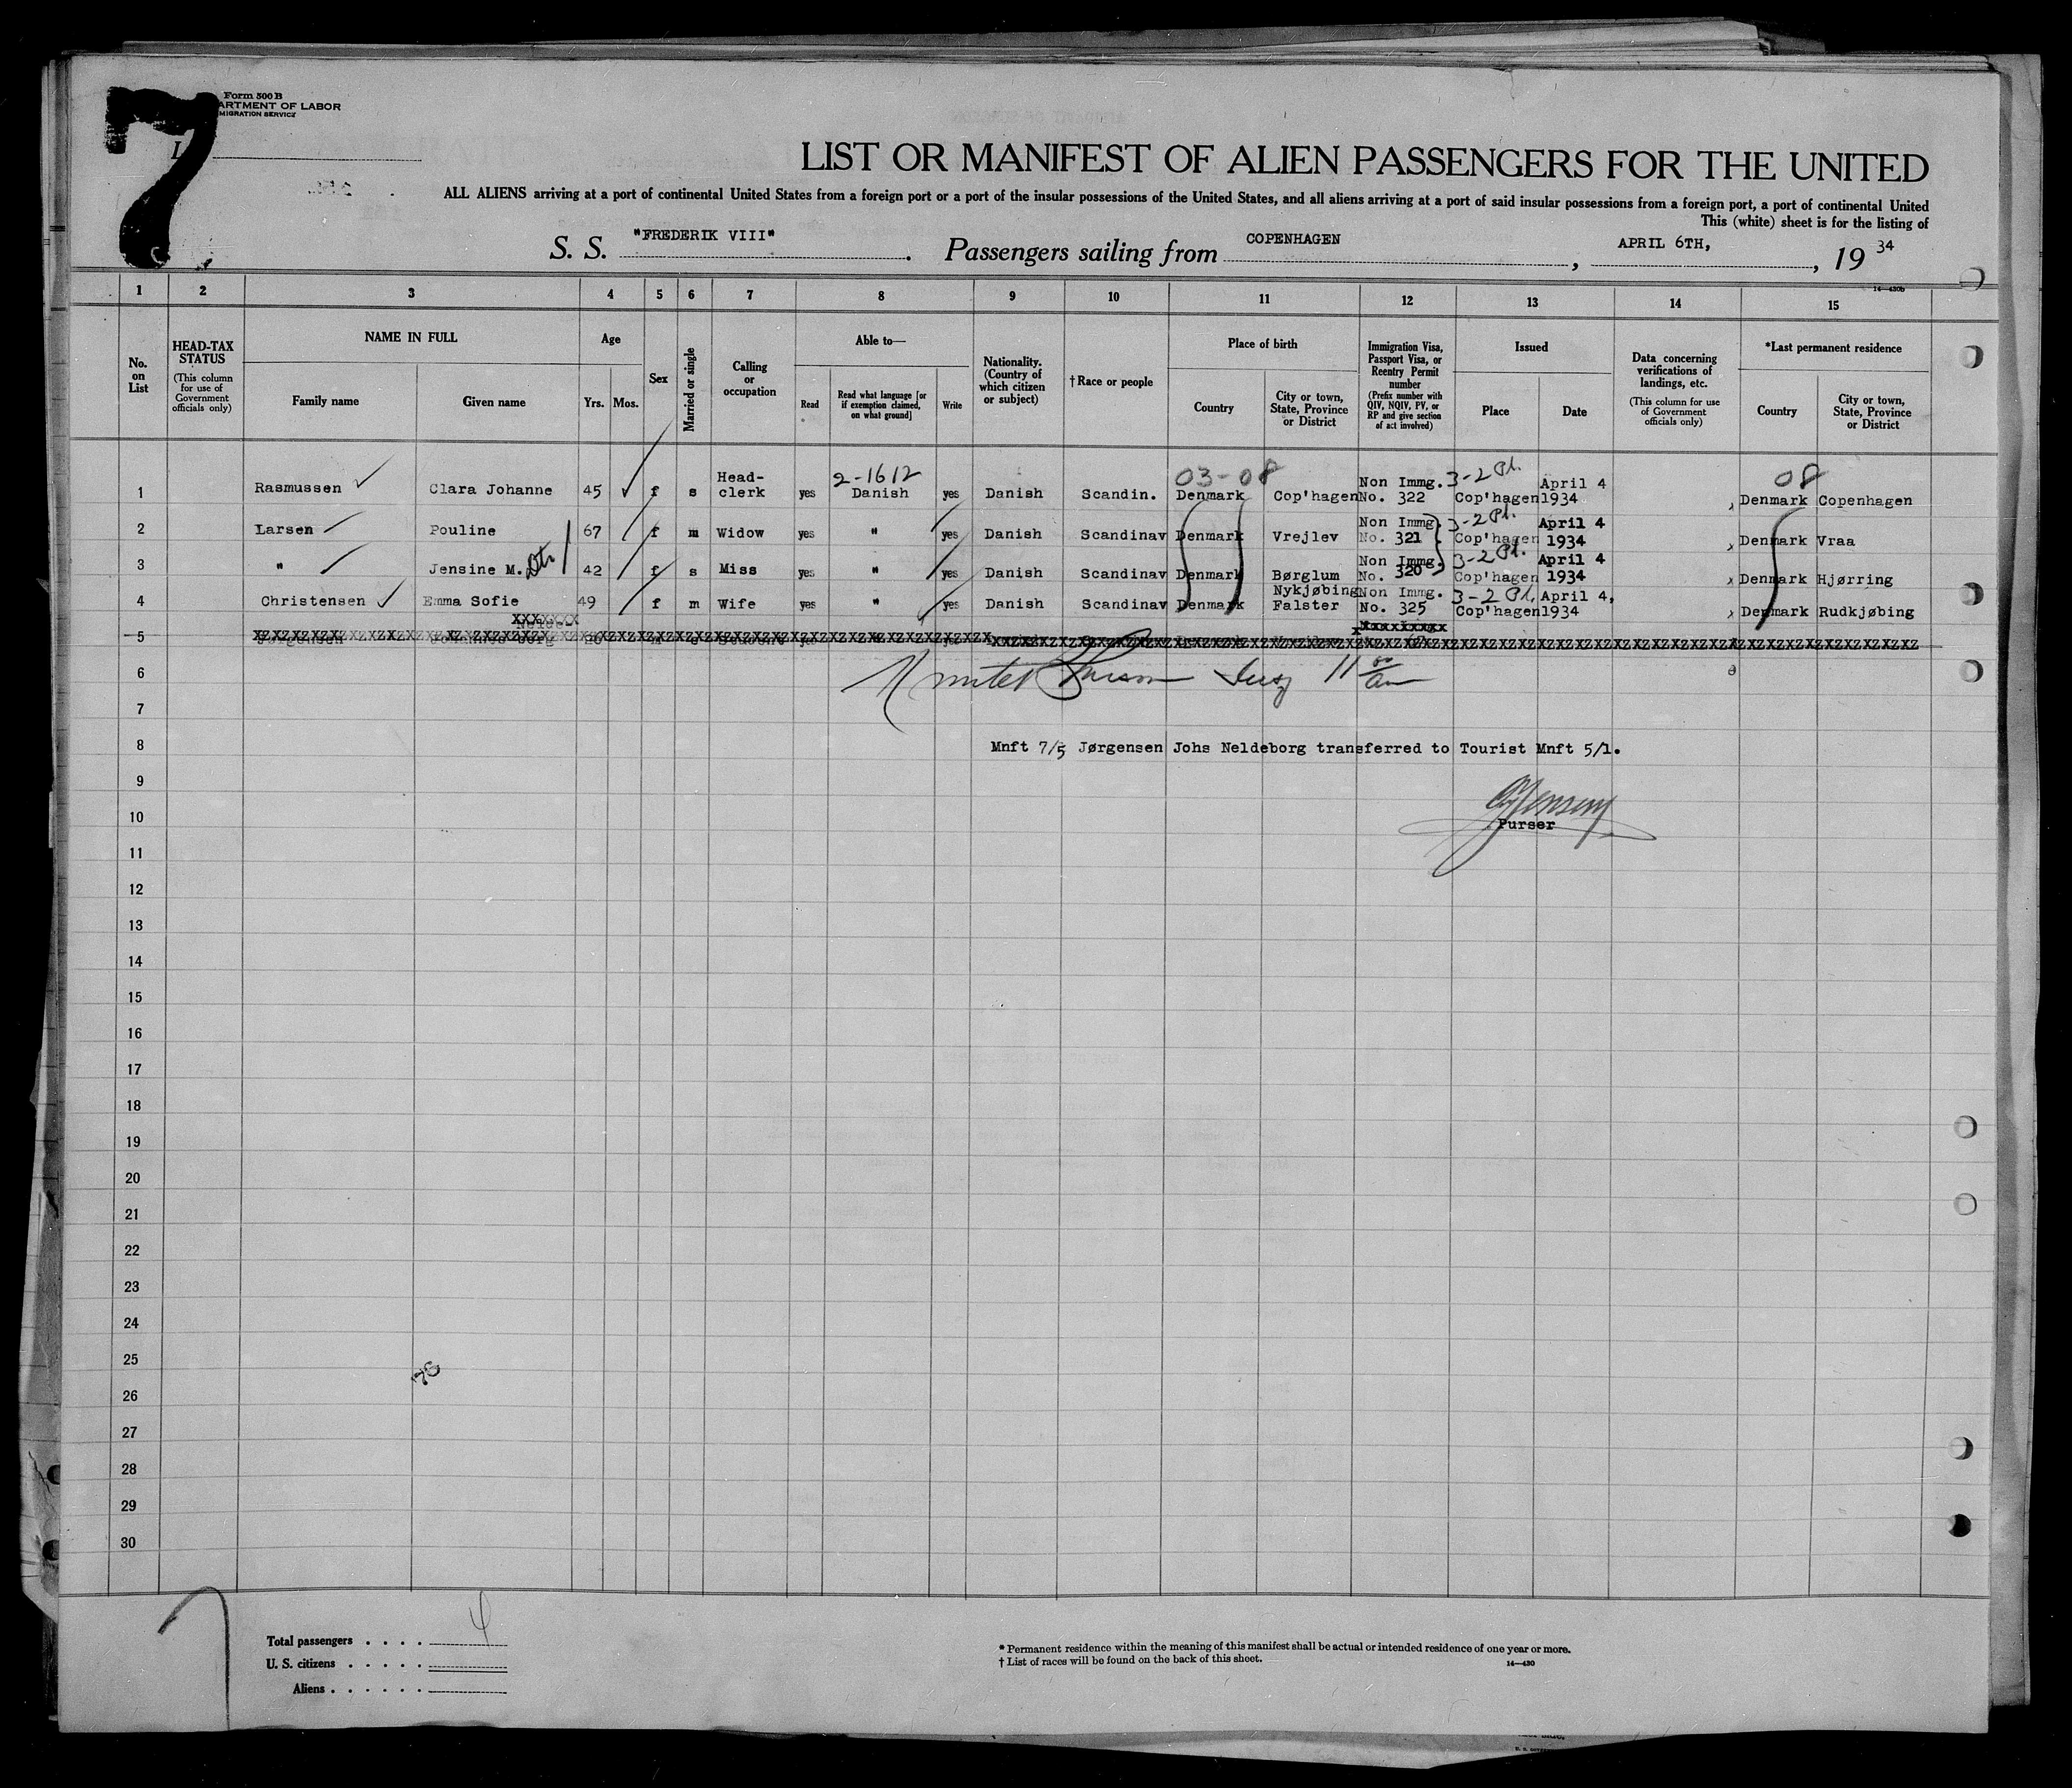 7
Form 500 B
ARTMENT OF LABOR
MIGRATION SERVICE
LIST OR MANIFEST OF ALIEN PASSENGERS FOR THE UNITED
ALL ALIENS arriving at a port of continental United States from a foreign port or a port of the insular possessions of the United States, and all aliens arriving at a port of said insular possessions from a foreign port, a port of continental United
This (white) sheet is for the listing of
S. S. "FREDERIK VIII". Passengers sailing from COPENHAGEN, APRIL 6TH, , 19 34
14—430b
1 2 3 4 5 6 7 8 9 10 11 12 13 14 15
No. on List
HEAD-TAX STATUS (This column for use of Government officials only)
NAME IN FULL
Family name Given name
Age
Yrs. Mos.
Sex
Married or single
Calling or occupation
Able to—
Read Read what language [or if exemption claimed, on what ground] Write
Nationality. (Country of which citizen or subject)
†Race or people
Place of birth
Country City or town, State, Province or District
Immigration Visa, Passport Visa, or Reentry Permit number (Prefix number with QIV, NQIV, PV, or RP and give section of act involved)
Issued
Place Date
Data concerning verifications of landings, etc. (This column for use of Government officials only)
*Last permanent residence
Country City or town, State, Province or District
2-1612 03-08 3-2 Pl. 08
1 Rasmussen Clara Johanne 45 f s Head-clerk yes Danish yes Danish Scandin. Denmark Cop'hagen Non Immg. No. 322 Cop'hagen April 4 1934 Denmark Copenhagen
2 Larsen Pouline 67 f m Widow yes " yes Danish Scandinav Denmark Vrejlev Non Immg. No. 321 3-2 Pl. Cop'hagen April 4 1934 Denmark Vraa
3 " Jensine M. Dtr 42 f s Miss yes " yes Danish Scandinav Denmark Børglum Non Immg. No. 320 3-2 Pl. Cop'hagen April 4 1934 Denmark Hjørring
4 Christensen Emma Sofie 49 f m Wife yes " yes Danish Scandinav Denmark Nykjøbing Falster Non Immg. No. 325 3-2 Pl. Cop'hagen April 4, 1934 Denmark Rudkjøbing
5
6
7
8 Mnft 7/5 Jørgensen Johs Neldeborg transferred to Tourist Mnft 5/1.
9
10 Purser
11
12
13
14
15
16
17
18
19
20
21
22
23
24
25
26
27
28
29
30
Total passengers . . . . 4
U. S. citizens . . . . .
Aliens . . . . . .
* Permanent residence within the meaning of this manifest shall be actual or intended residence of one year or more.
† List of races will be found on the back of this sheet.
14—430